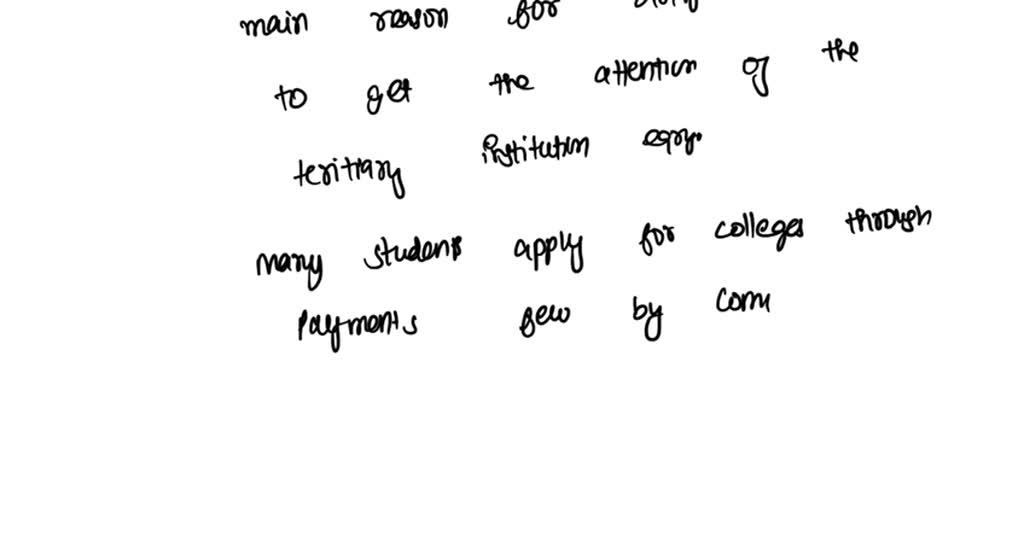 main reason for
to get the attention of the
teritiary institution
many students apply for colleges through
payments few by com